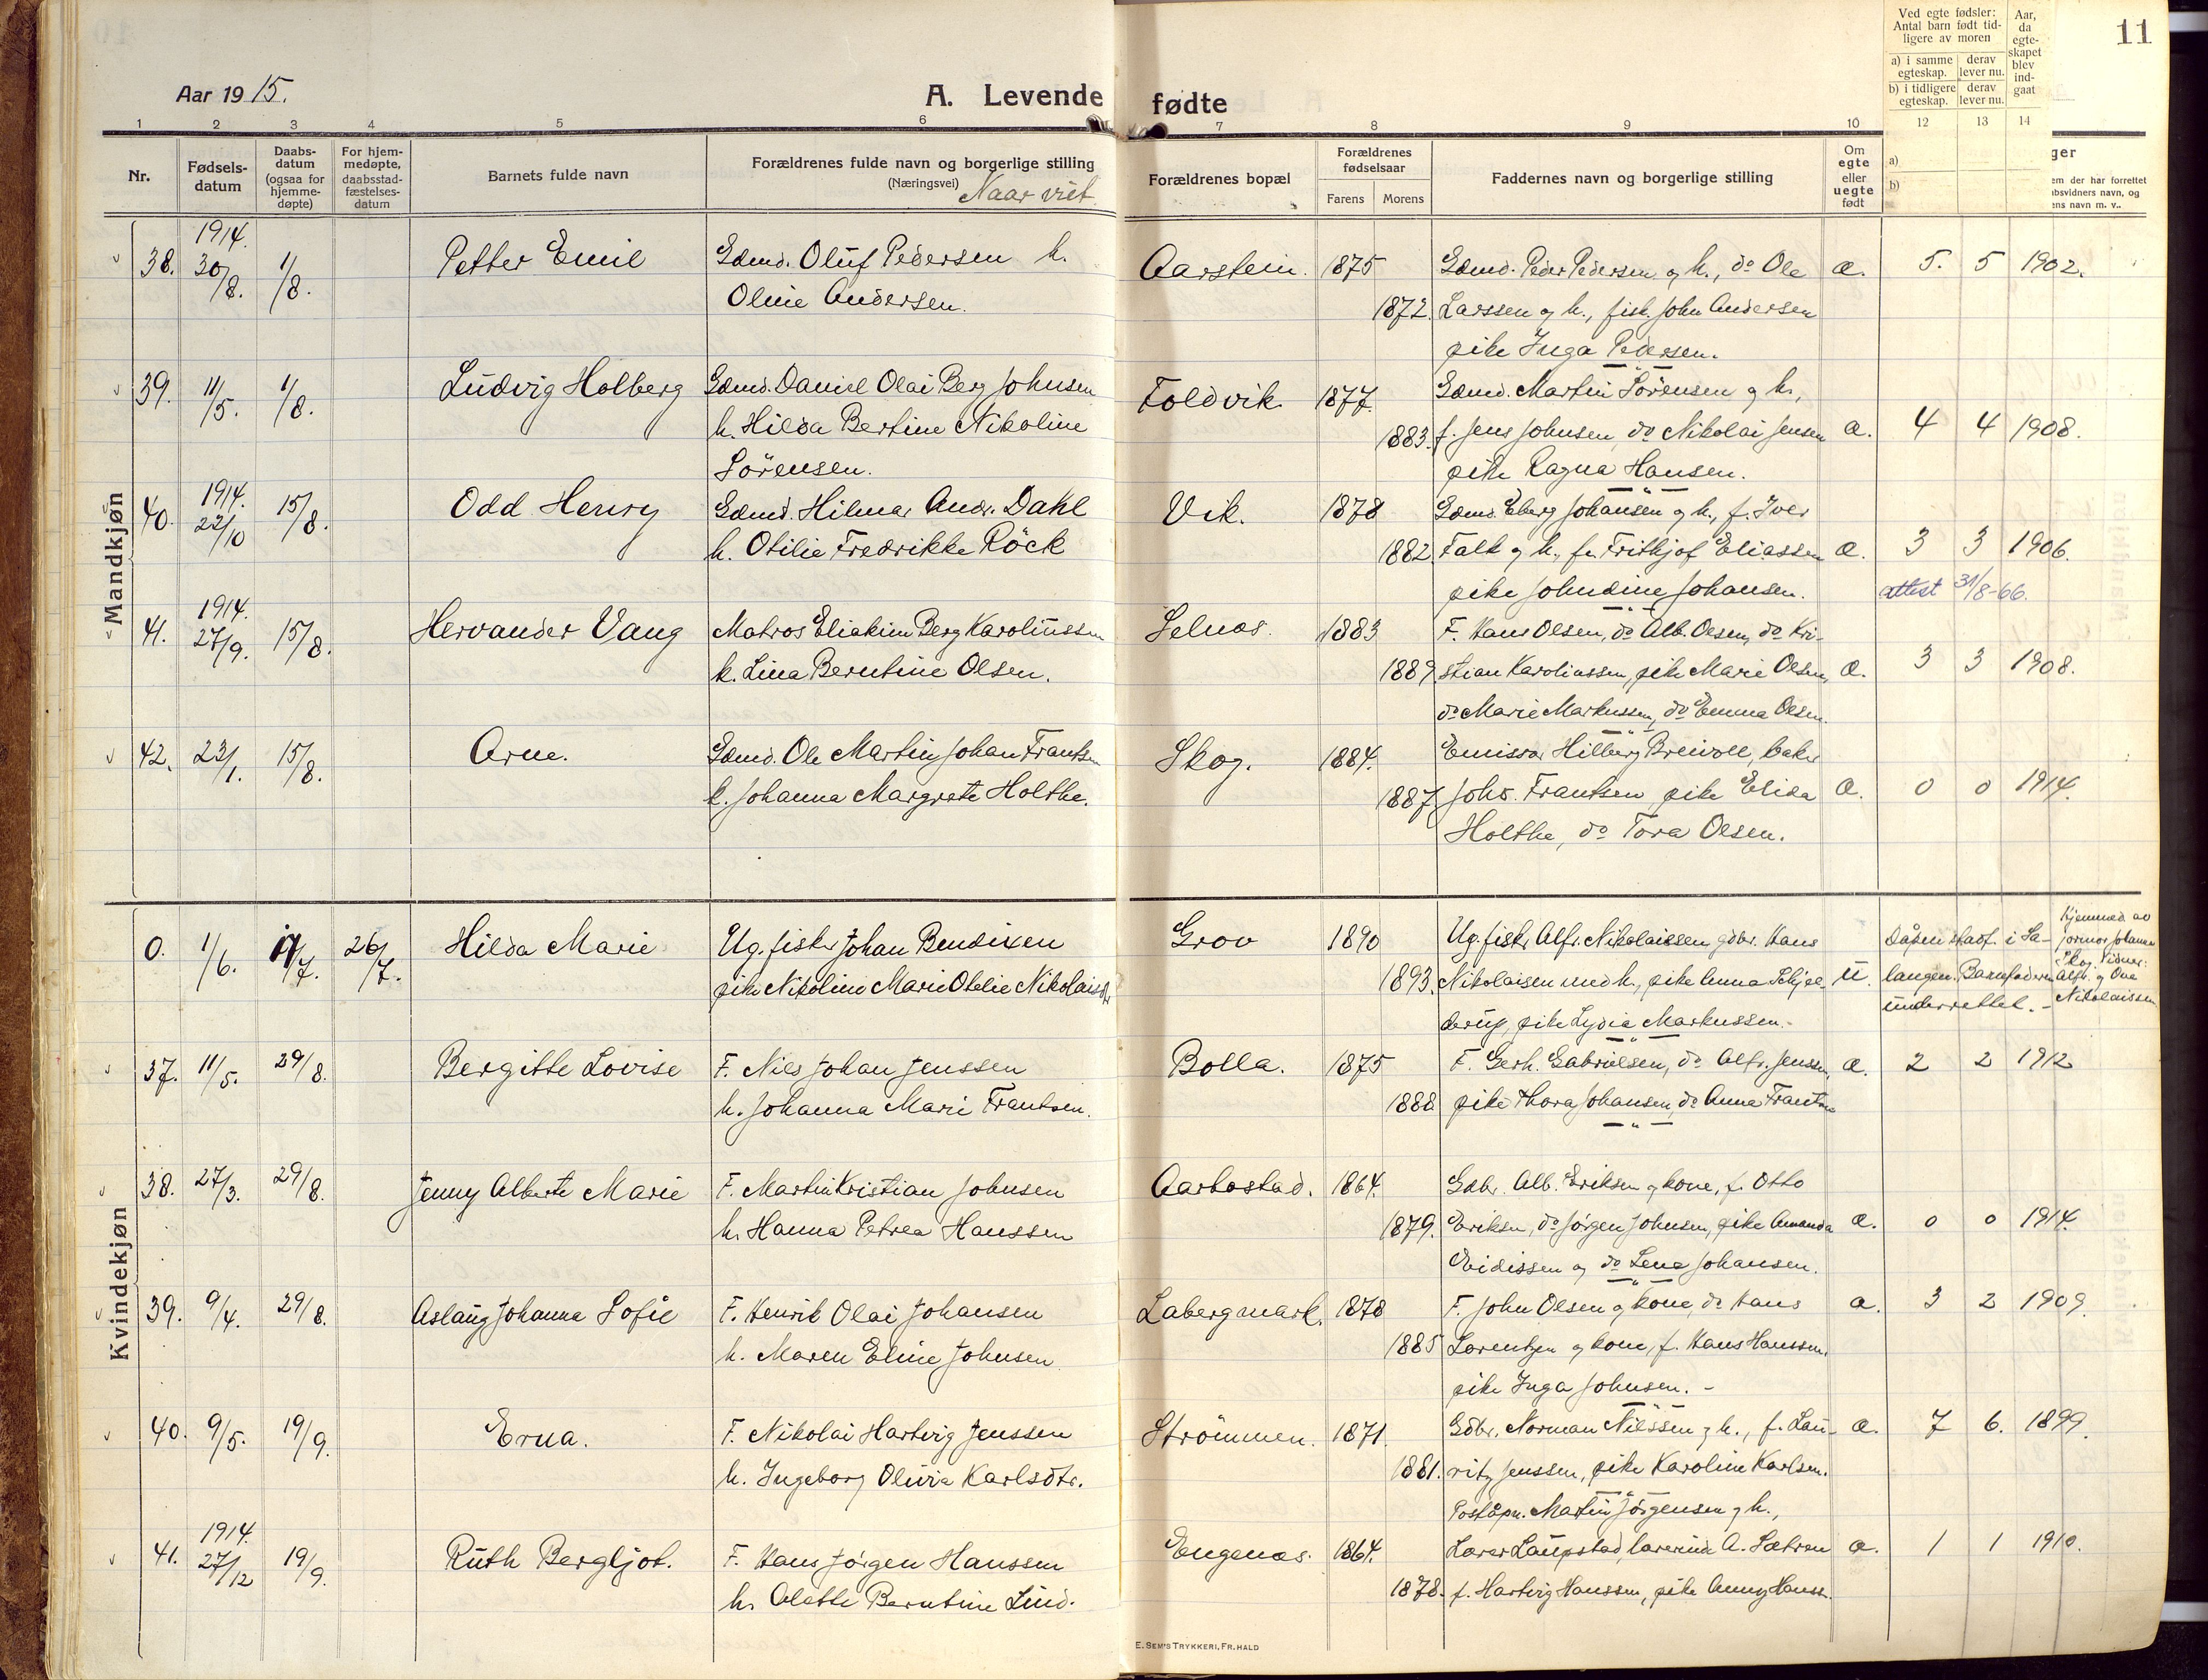 Aar 1915.
A. Levende fødte
11
Ved egte fødsler:
Antal barn født tid-
ligere av moren
a) i samme egteskap.
derav lever nu.
b) i tidligere egteskap.
derav lever nu.
Aar, da egte-skapet blev ind-gaat
1 2 3 4 5 6 7 8 9 10 12 13 14
Nr.
Fødsels-datum
Daabs-datum (ogsaa for hjemme-døpte)
For hjem-medøpte, daabsstad-fæstelses-datum
Barnets fulde navn
Forældrenes fulde navn og borgerlige stilling
(Næringsvei) Naar viet
Forældrenes bopæl
Forældrenes fødselsaar
Farens Morens
Faddernes navn og borgerlige stilling
Om egte eller uegte født
a)
b)
ger
em der har forrettet
absvidners navn, og
ens navn m. v..
Mandkjøn
38. 1914. 30/8. 1/8. Petter Emil Gdmd. Oluf Pedersen h. Aarstein. 1875 Gdmd. Peder Pedersen og h., do Ole æ. 5. 5 1902.
Oline Andersen. 1872. Larssen og h., fisk. John Andersen
pike Inga Pedersen.
39. 11/5. 1/8. Ludvig Holberg Gdmd. Daniel Olai Berg Johnsen Foldvik 1877. Gdmd. Martin Sörensen og h.,
h. Hilda Bertine Nikoline 1883. f. Jens Johnsen, do Nikolai Jensen æ. 4 4 1908.
Sörensen. pike Ragna Hansen.
40. 1914. 22/10 15/8. Odd Henry Gdmd. Hilmar Andr. Dahl Vik. 1878 Gdmd. Eberg Johansen og h., f. Iver
h. Otilie Fredrikke Röck 1882. Falk og h., f. Frithjof Eliassen æ. 3 3 1906.
pike Johndine Johansen. attest 31/8-66.
41. 1914. 27/9. 15/8. Hervander Vang Matros Eliakim Berg Karolinssen Selnæs. 1883 F. Hans Olsen, do Alb. Olsen, do Kri-
h. Lina Berntine Olsen. 1889 stian Karolinssen, pike Marie Olsen, æ. 3 3 1908.
do Marie Markussen, do Emma Olsen.
42. 23/1. 15/8. Arne. Gdmd. Ole Martin Johan Frantsen Skog. 1884. Emissær Hilberg Breivoll, baker
h. Johanna Margrete Holthe. 1887 Johs. Frantsen, pike Elida æ. 0 0 1914.
Holthe, do Tora Olsen.
Kvindekjøn
0. 1/6. 11/7. 26/7. Hilda Marie Ug. fisker Johan Bendixen Grov 1890 Ug. fisk. Alfr. Nikolaissen gdbr. Hans Daaben stadf. i Sa- Hjemmed. av
pike Nikoline Marie Otelie Nikolaisdtr 1893. Nikolaisen med h., pike Anna Schjel- u. langen. Barnefaderen
derup, pike Lydia Markussen. underrettet. Nikolaissen
37. 11/5. 29/8. Bergitte Lovise F. Nils Johan Jenssen Bolla. 1875 F. Gerh. Gabrielsen, do Alfr. Jenssen, æ. 2 2 1912
h. Johanna Marie Frantsen. 1888 pike Thora Johansen, do Anna Frantsen
38. 27/3. 29/8. Jenny Alberte Marie F. Martin Kristian Johnsen Aarbostad. 1864. Gdbr. Alb. Eriksen og kone, f. Otto
h. Hanna Petrea Hanssen 1879. Eriksen, do Jørgen Johnsen, pike Amanda æ. 0 0 1914.
Eidissen og do Lena Johansen.
39. 9/4. 29/8. Aslaug Johanna Sofie F. Henrik Olai Johansen Labergmark. 1878 F. John Olsen og kone, do Hans æ. 3 2 1909.
h. Maren Eline Johnsen 1885 Lorentzen og kone, f. Hans Hanssen.
pike Inga Johnsen.
40. 9/5. 19/9. Erna. F. Nikolai Hartvig Jenssen Strömmen. 1871. Gdbr. Norman Nilssen og h., f. Lau- æ. 7 6. 1899.
h. Ingeborg Olivia Karlsdtr. 1881. ritz Jenssen, pike Karoline Karlsen.
Postaapn. Martin Jørgensen og h.,
41. 1914. 27/12 19/9. Ruth Bergljot. F. Hans Jørgen Hanssen Engenæs. 1864. Lærer Laupstad, lærerinde A. Sætran æ. 1 1 1910.
h. Olette Berntine Lind. 1878. f. Hartvig Hanssen, pike Anny Hanss.
E. SEM'S TRYKKERI, FR. HALD